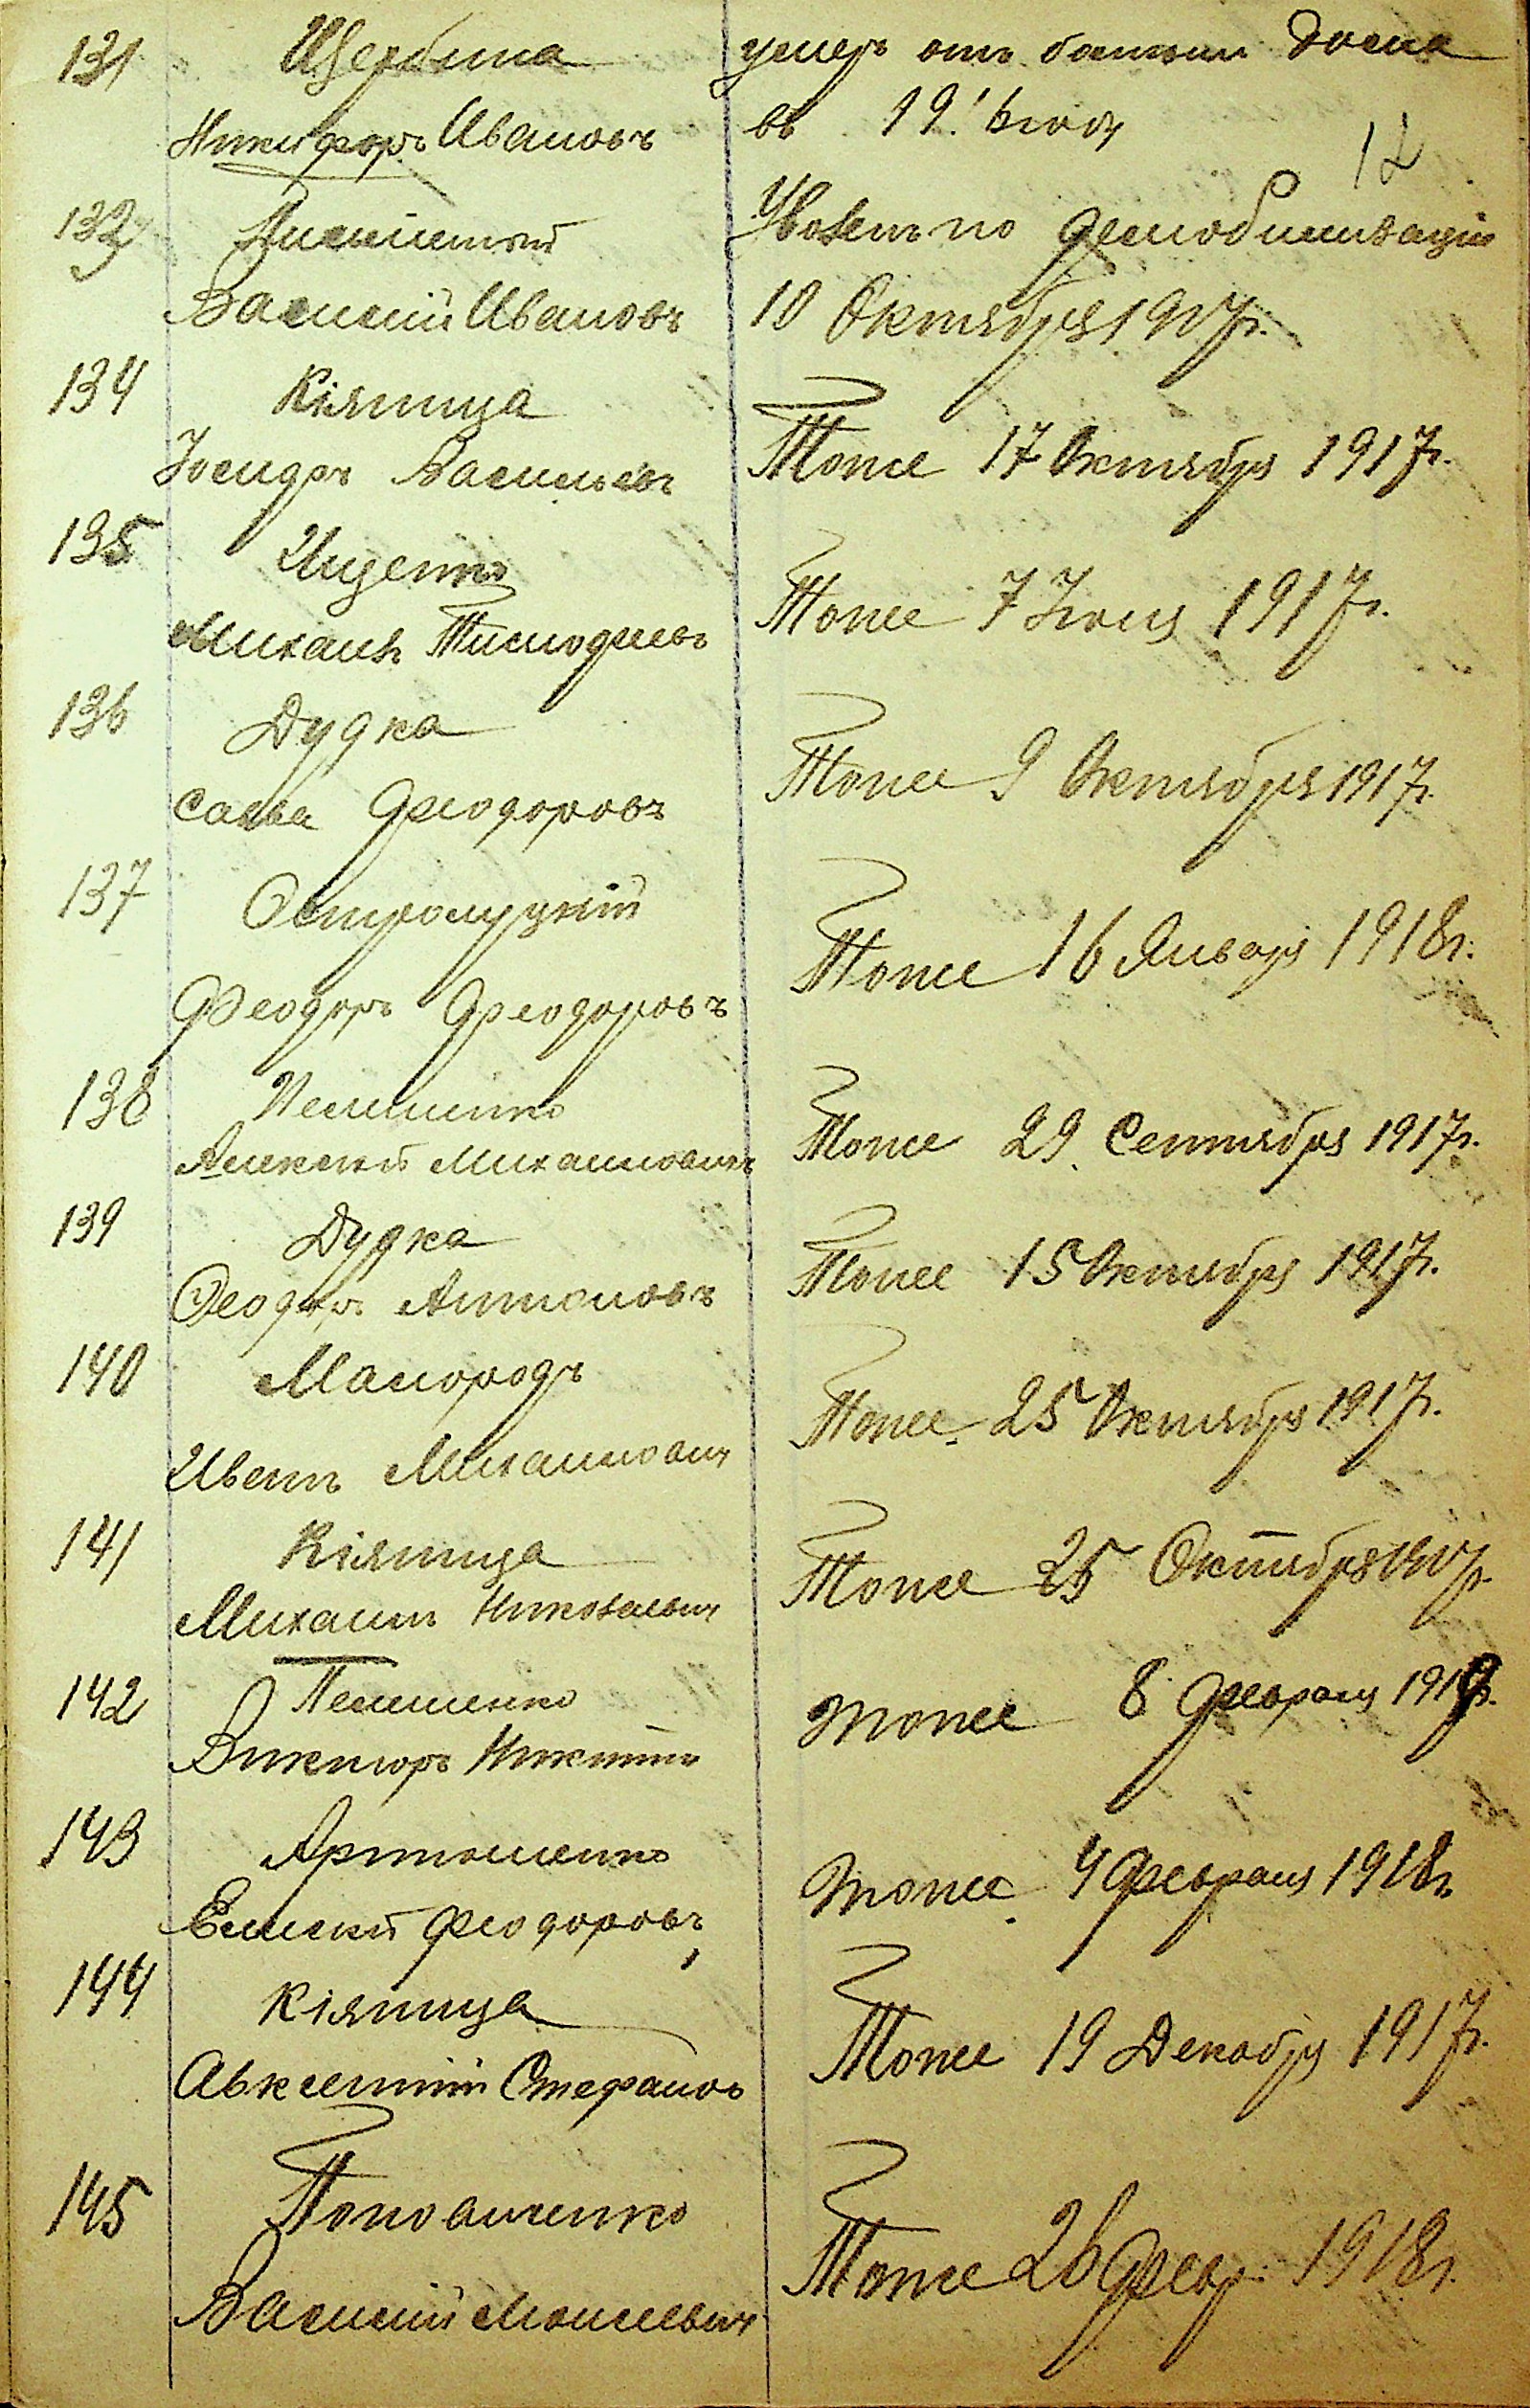 131 Щербина умеръ отъ болезни дома
Никифоръ Ивановъ въ 19 году
12
Уволенъ по демобилизаціи
Василій Ивановъ 10 Октября 1917г.
134 Кіяница
Тоже 17 Октября 1917г.
Васильевъ
135 Ищенко
Тоже 7 1917г.
Михаилъ Тимофеевъ
136 Дудка
Тоже 9 Октября 1917г.
Савва Феодоровъ
137 Остролуцкій
Тоже 16 Января 1918г.
Феодоръ Феодоровъ
138
Тоже 29 Сентября 1917г.
Алексей Михаиловичъ
139 Дудка
Тоже 15 Октября 1917г.
Феодоръ Антоновъ
140
Тоже 25 Октября 1917г.
Иванъ Михаиловичъ
141 Кіяница
Тоже 25 Октября
Михаилъ Николаевич
142 Пелешенко
Тоже 8 Февраля
Викторъ Никитинъ
143 Артюшенко
Тоже 4 Февраля 1918г.
Елисей Феодоровъ
144 Кіяница
Тоже 19 Декабря 1917г.
Авксентий Стефановъ
145
Тоже 26 Февр. 1918г.
Василій Моисеевич